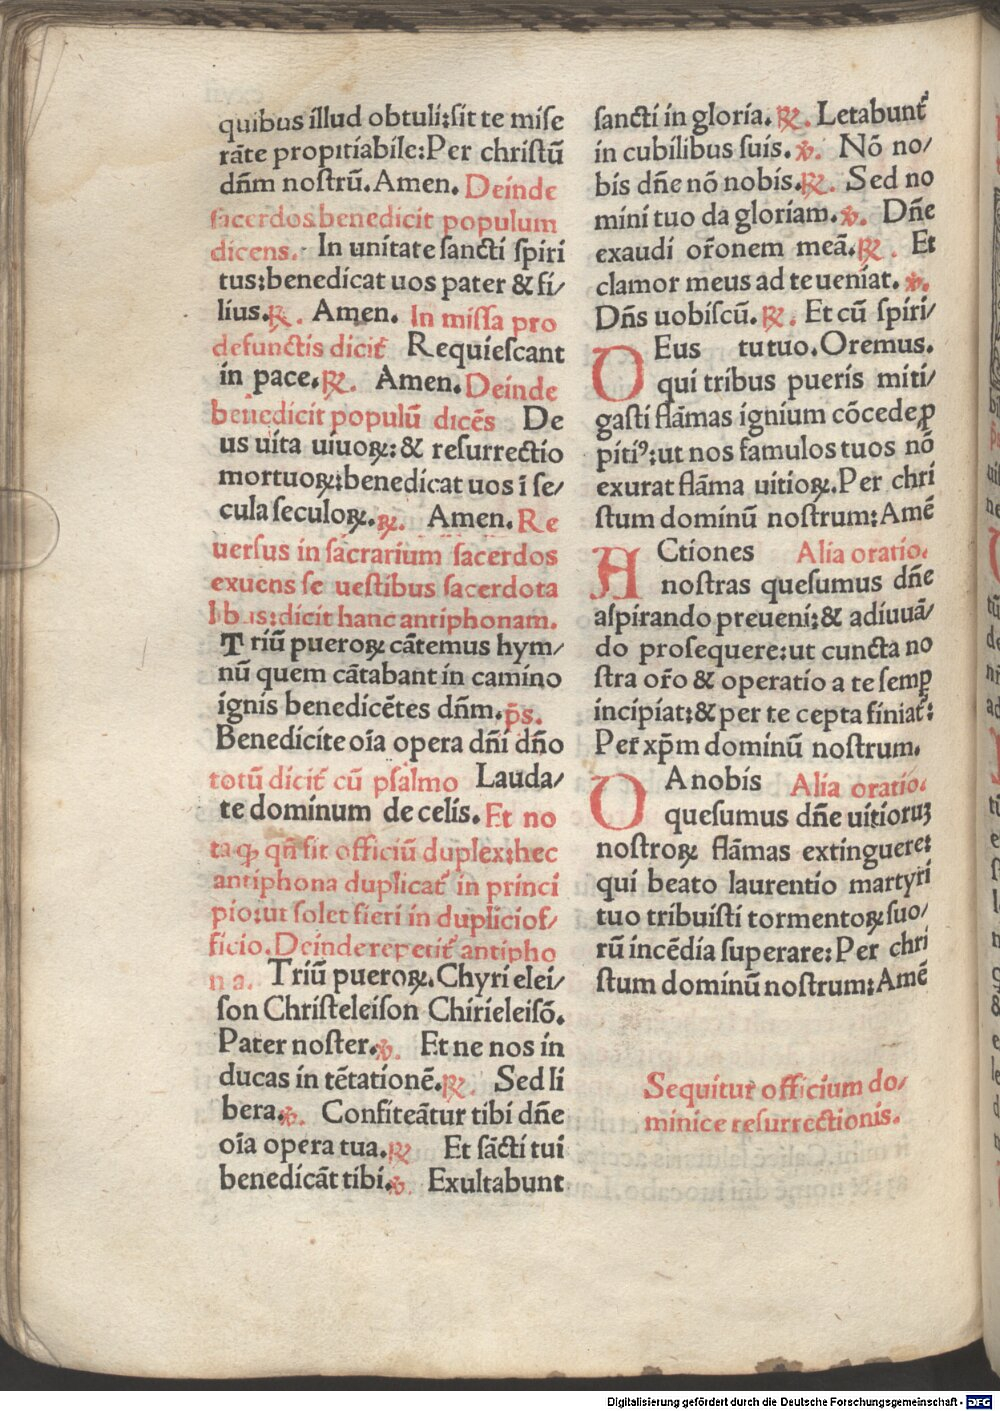 quibus illud obtuli:sit te mise
rāte propitiabile:Per christū
dn̄m nostrū.Amen. Deinde
sacerdos benedicit populum
dicens. In unitate sancti spiri
tus:benedicat uos pater & fi/
lius.℟. Amen. In missa pro
defunctis dicit̄ Requiescant
in pace.℟. Amen.Deinde
benedicit populū dicēs De
us uita uiuoꝝ:& resurrectio
mortuoꝝ:benedicat uos ī se/
cula seculoꝝ.℟. Amen. Re
uersus in sacrarium sacerdos
exuens se uestibus sacerdota
lbus:dicit hanc antiphonam.
Triū pueroꝝ cātemus hym/
nū quem cātabant in camino
ignis benedicētes dn̄m.p̄s.
Benedicite oīa opera dn̄i dn̄o
totū dicit̄ cū psalmo Lauda/
te dominum de celis. Et no
ta ꝙ qn̄ sit officiū duplex:hec
antiphona duplicat̄ in princi
pio:ut solet fieri in duplici of/
ficio.Deinde repetit̄ antipho
na. Triū pueroꝝ.Chyri elei/
son Christeleison Chirieleisō.
Pater noster.℣. Et ne nos in
ducas in tētationē.℟. Sed li
bera.℣. Confiteātur tibi dn̄e
oīa opera tua.℟ Et sāctī tui
benedicāt tibi.℣. Exultabunt
sancti in gloria.℟. Letabunt̄
in cubilibus suis.℣. Nō no/
bis dn̄e nō nobis.℟. Sed no
mini tuo da gloriam.℣. Dn̄e
exaudi or̄onem meā.℟. Et
clamor meus ad te ueniat.℣.
Dn̄s uobiscū.℟. Et cū spiri/
DEus tu tuo.Oremus.
qui tribus pueris miti/
gasti flāmas ignium cōcede ꝓ
pitiꝰ:ut nos famulos tuos nō
exurat flāma uitioꝝ.Per chri
stum dominū nostrum:Amē
ACtiones Alia oratio.
nostras quesumus dn̄e
aspirando preueni:& adiuuā/
do prosequere:ut cuncta no
stra or̄o & operatio a te semꝑ
incipiat:& per te cepta finiat̄:
Per xp̄m dominū nostrum.
DA nobis Alia oratio.
quesumus dn̄e uitioruꝫ
nostroꝝ flāmas extinguere:
qui beato laurentio martyri
tuo tribuisti tormentoꝝ suo/
rū incēdia superare:Per chri
stum dominū nostrum:Amē
Sequitur officium do/
minice resurrectionis.
Digitalisierung gefördert durch die Deutsche Forschungsgemeinschaft - DFG